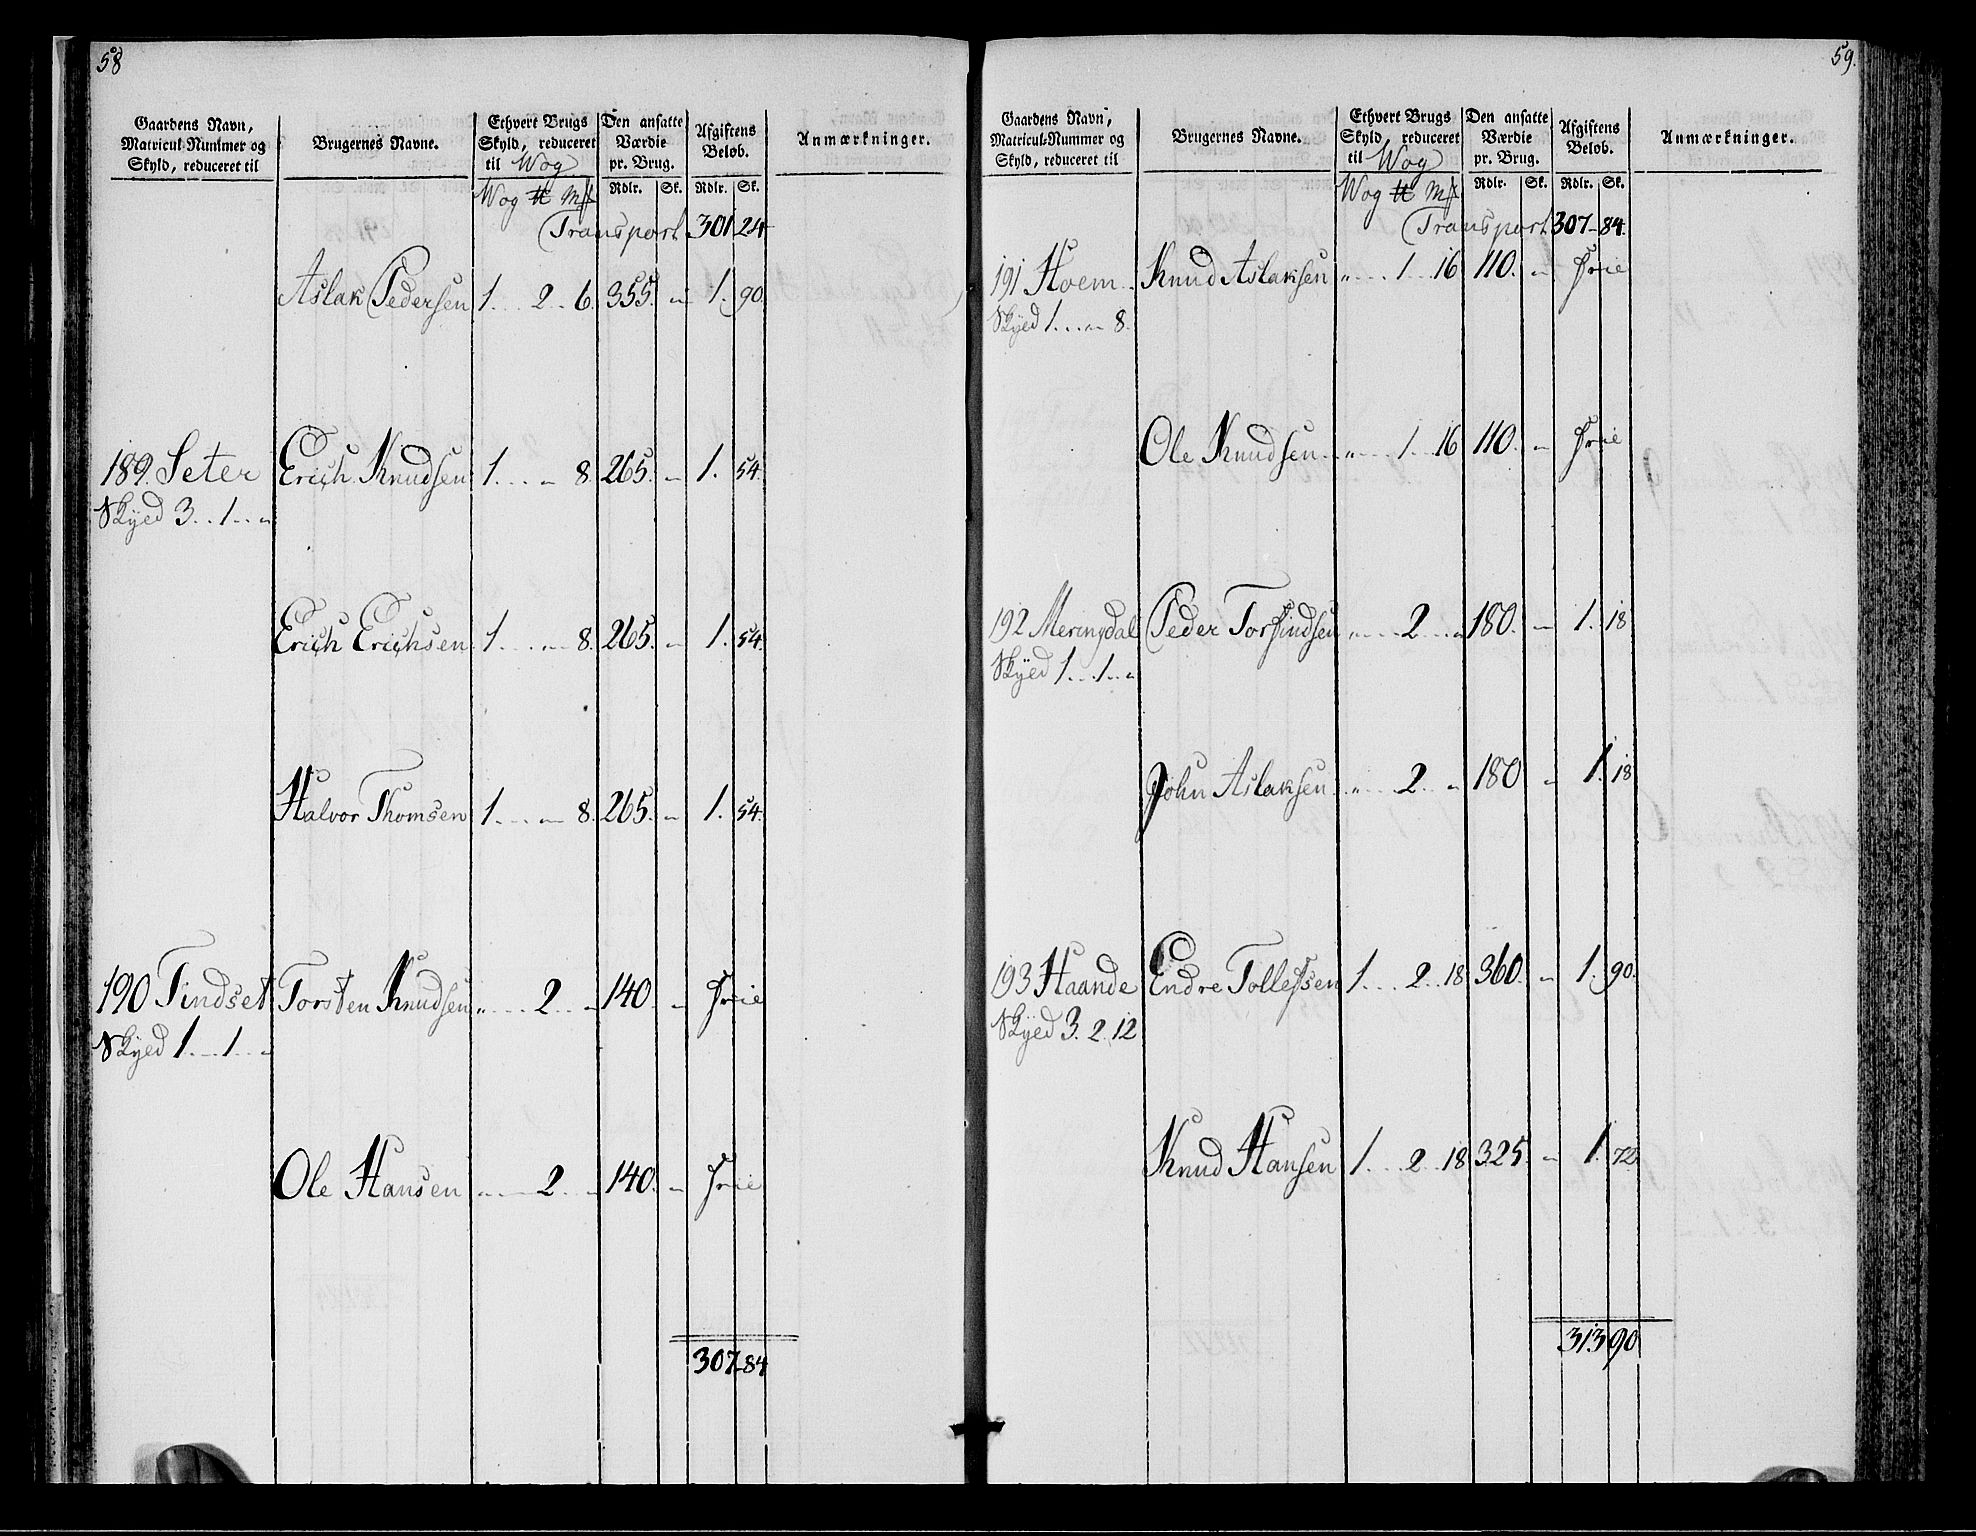 58
Gaardens Navn, Matricul-Nummer og Skyld, reduceret til | Brugernes Navne. | Ethvert Brugs Skyld, reduceret til Wog | Den ansatte Værdie pr. Brug. | Afgiftens Beløb. | Anmærkninger.
Wog ℔ Mk | Rdlr. | Sk. | Rdlr. | Sk.
Transport 301 24
Aslak Pedersen 1 . . . 2 . . 6. 355. „ 1. 90.
189. Seter Erich Knudsen 1. . . . „ 8. 265. „ 1. 54.
Skyed 3. . 1. . „
Erich Erichsen 1 . . . . „ 8. 265. „ 1. 54.
Halvor Thomsen 1. . . . „ 8. 265. „ 1. 54.
190 Tindset Torsten Knudsen „ . . . . 2 . . „ 140 „ Frie
Skyed 1. . . 1. . „
Ole Hansen „ . . . . 2 . . „ 140. „ Frie
307 84
59.
Gaardens Navn, Matricul-Nummer og Skyld, reduceret til | Brugernes Navne. | Ethvert Brugs Skyld, reduceret til Wog | Den ansatte Værdie pr. Brug. | Afgiftens Beløb. | Anmærkninger.
Wog ℔ Mk | Rdlr. | Sk. | Rdlr. | Sk.
Transport 307 84.
191 Hoem. Knud Aslaksen „ . . . . 1 . . 16 110. „ Frie
Skyed 1. . . „ 8.
Ole Knudsen „ . . . . 1 . . 16 110. „ Frie
192 Meringdal Peder Torfindsen „ . . . . 2 . . . „ 180. „ 1. 18
Skyed 1. . . 1. . „
John Aslaksen „ . . . 2 . . „ 180 „ 1. 18
193 Haande Endre Tollefsen 1. . . . 2 . . 18 360. „ 1. 90.
Skyed 3. 2. 12
Knud Hansen 1. . . . 2 . . 18 325. „ 1. 72
313 90